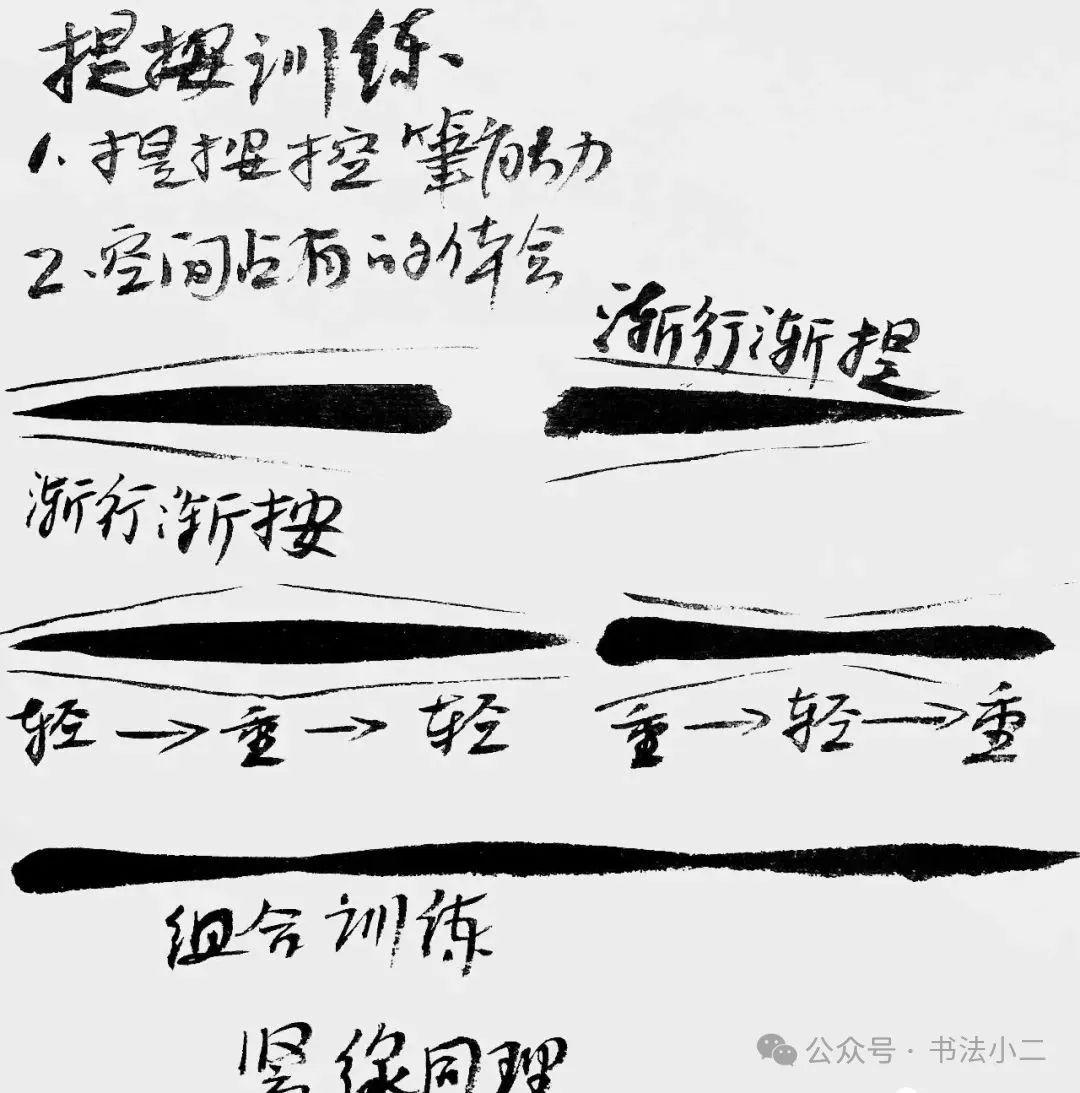 提按训练
1.提按控筆能力
2.空间占有的体会
渐行渐提
渐行渐按
轻→重→轻
重→轻→重
组合训练
竖線同理
公众号·书法小二